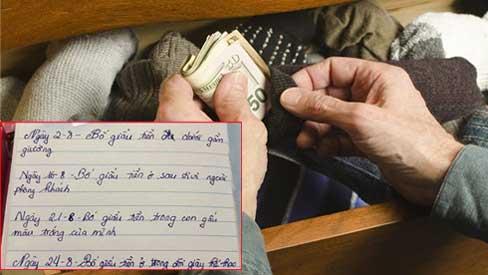 Ngày 2-8 - Bố giấu tiền dưới gầm
giường
Ngày 16-8 - Bố giấu tiền ở sau tivi ngoài
phòng khách
Ngày 21-8 Bố giấu tiền trong con gấu
màu trắng của mình
Ngày 24-8 - Bố giấu tiền ở trong đôi giày
50